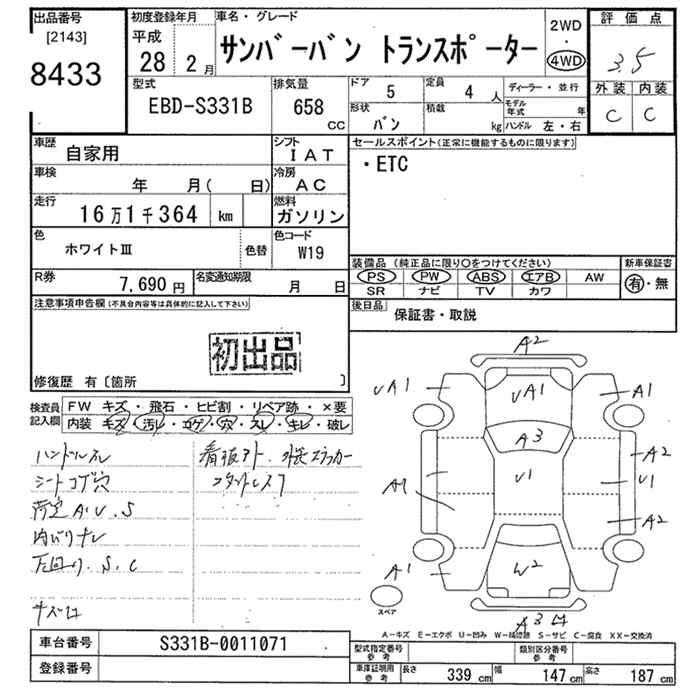 出品番号
[2143]
8433
初度登録年月
平成
28 2月
車名・グレード
サンバーバン トランスポーター
2WD
・
4WD
評価点
3.5
外装 内装
C C
型式
EBD-S331B
排気量
658
CC
ドア 5
定員 4 人
形状 バン
積載 kg
ディーラー・並行
モデル年式 年
ハンドル 左・右
車歴 自家用
シフト IAT
車検 年 月( 日)
冷房 AC
走行 16万1千364 km
燃料 ガソリン
色 ホワイトⅢ
色替
色コード W19
R券 7,690円
名変通知期限 月 日
セールスポイント(正常に機能するものに限ります)
・ETC
装備品(純正品に限り○をつけてください)
PS PW ABS エアB AW
SR ナビ TV カワ
新車保証書
有・無
後日品
保証書・取説
注意事項申告欄(不具合内容等は具体的に記入して下さい)
初出品
修復歴 有〔箇所 〕
検査員記入欄
FW キズ・飛石・ヒビ割・リペア跡・×要
内装 キズ・汚レ・コゲ・穴・スレ・キレ・破レ
ハンドルスレ
シートコゲ穴
荷室A.U.S
内バリナシ
下回り.S.C
A2
UA1
UA1
A1
A3
A2
U1
U1
A1
A2
A1
W2
A3
スペア
A-キズ E-エクボ U-凹み W-補修跡 S-サビ C-腐食 XX-交換済
車台番号 S331B-0011071
登録番号
型式指定番号 参考
類別区分番号 参考
車庫証明用 参考
長さ 339 cm
幅 147 cm
高さ 187 cm